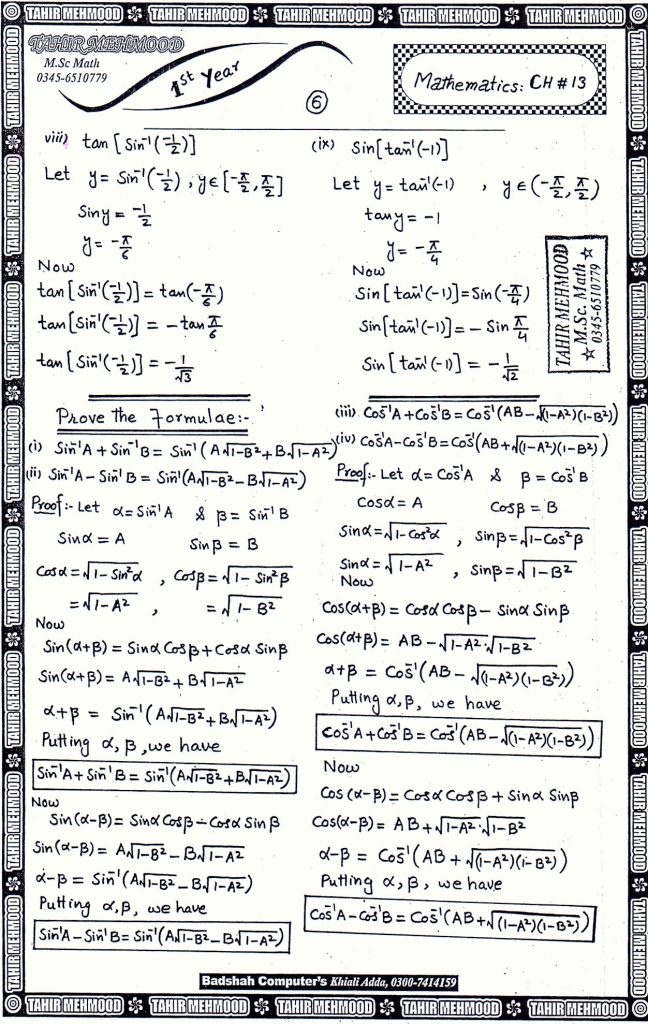 TAHIR MEHMOOD TAHIR MEHMOOD TAHIR MEHMOOD TAHIR MEHMOOD TAHIR MEHMOOD
TAHIR MEHMOOD
M.Sc Math
0345-6510779
1st Year
6
Mathematics: CH # 13
viii) tan [Sin⁻¹(-1/2)]
Let y = Sin⁻¹(-1/2) , y ∈ [-π/2, π/2]
Sin y = -1/2
y = -π/6
Now
tan [Sin⁻¹(-1/2)] = tan(-π/6)
tan [Sin⁻¹(-1/2)] = - tan π/6
tan [Sin⁻¹(-1/2)] = - 1/√3
(ix) Sin[tan⁻¹(-1)]
Let y = tan⁻¹(-1) , y ∈ (-π/2, π/2)
tan y = -1
y = -π/4
Now
Sin [tan⁻¹(-1)] = Sin(-π/4)
Sin[tan⁻¹(-1)] = - Sin π/4
Sin [tan⁻¹(-1)] = - 1/√2
TAHIR MEHMOOD
M.Sc. Math
☆ 0345-6510779 ☆
Prove the Formulae:-
(i) Sin⁻¹A + Sin⁻¹B = Sin⁻¹(A√(1-B²) + B√(1-A²))
(ii) Sin⁻¹A - Sin⁻¹B = Sin⁻¹(A√(1-B²) - B√(1-A²))
Proof:- Let α = Sin⁻¹A & β = Sin⁻¹B
Sinα = A Sinβ = B
Cosα = √(1-Sin²α) , Cosβ = √(1-Sin²β)
= √(1-A²) , = √(1-B²)
Now
Sin(α+β) = Sinα Cosβ + Cosα Sinβ
Sin(α+β) = A√(1-B²) + B√(1-A²)
α+β = Sin⁻¹(A√(1-B²) + B√(1-A²))
Putting α, β, we have
Sin⁻¹A + Sin⁻¹B = Sin⁻¹(A√(1-B²) + B√(1-A²))
Now
Sin(α-β) = Sinα Cosβ - Cosα Sinβ
Sin(α-β) = A√(1-B²) - B√(1-A²)
α-β = Sin⁻¹(A√(1-B²) - B√(1-A²))
Putting α, β, we have
Sin⁻¹A - Sin⁻¹B = Sin⁻¹(A√(1-B²) - B√(1-A²))
(iii) Cos⁻¹A + Cos⁻¹B = Cos⁻¹(AB - √((1-A²)(1-B²)))
(iv) Cos⁻¹A - Cos⁻¹B = Cos⁻¹(AB + √((1-A²)(1-B²)))
Proof:- Let α = Cos⁻¹A & β = Cos⁻¹B
Cosα = A Cosβ = B
Sinα = √(1-Cos²α) , Sinβ = √(1-Cos²β)
Sinα = √(1-A²) , Sinβ = √(1-B²)
Now
Cos(α+β) = Cosα Cosβ - Sinα Sinβ
Cos(α+β) = AB - √(1-A²)·√(1-B²)
α+β = Cos⁻¹(AB - √((1-A²)(1-B²)))
Putting α, β, we have
Cos⁻¹A + Cos⁻¹B = Cos⁻¹(AB - √((1-A²)(1-B²)))
Now
Cos(α-β) = Cosα Cosβ + Sinα Sinβ
Cos(α-β) = AB + √(1-A²)·√(1-B²)
α-β = Cos⁻¹(AB + √((1-A²)(1-B²)))
Putting α, β, we have
Cos⁻¹A - Cos⁻¹B = Cos⁻¹(AB + √((1-A²)(1-B²)))
Badshah Computer's Khiali Adda, 0300-7414159
TAHIR MEHMOOD TAHIR MEHMOOD TAHIR MEHMOOD TAHIR MEHMOOD TAHIR MEHMOOD
TAHIR MEHMOOD TAHIR MEHMOOD TAHIR MEHMOOD TAHIR MEHMOOD TAHIR MEHMOOD TAHIR MEHMOOD TAHIR MEHMOOD
TAHIR MEHMOOD TAHIR MEHMOOD TAHIR MEHMOOD TAHIR MEHMOOD TAHIR MEHMOOD TAHIR MEHMOOD TAHIR MEHMOOD